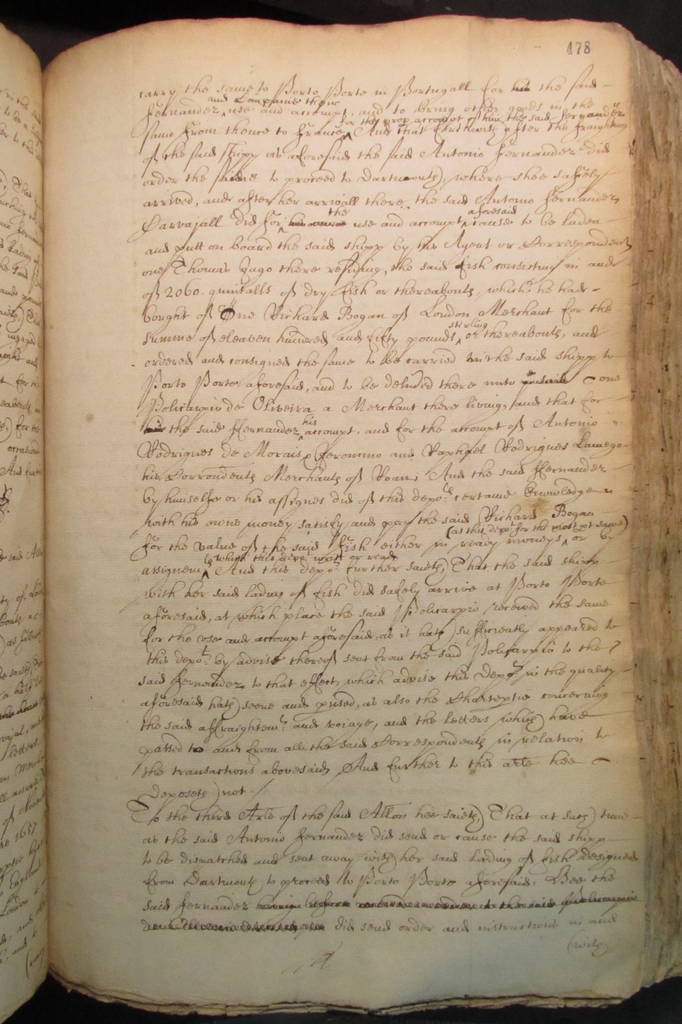 478
carry the same to Porto Porto in Portugall for the said
Fernandez and Companie their use and accompt, and to bring other goods in the
same from thence to France for the accompt of him the said Fernandez And that after the fraighting
of the said shipp as aforesaid the said Antonio Fernandez did
order the same to proceed to Dartmouth where shee safely
arrived, and after her arrivall there, the said Antonio Fernandez
Carvajall did for the use and accompt aforesaid cause to be laden
and putt on board the said shipp by his Agent or Correspondent
one Thomas Jago there residing, the said fish consisting in and
of 2060 quintalls of dry fish or thereabouts, which he had
bought of One Richard Bogan of London Merchant for the
summe of eleaven hundred and fifty pounds sterling or thereabouts, and
ordered and consigned the same to be carried in the said shipp to
Porto Porto aforesaid, and to be delivered there unto one
Policarpio de Oliveira a Merchant there living, and that for
the said Fernandez his accompt, and for the accompt of Antonio
Rodrigues de Morais, Jeronimo and Raphael Rodrigues Lamego
his Correspondents Merchants of Roan; And the said Fernandez
by himselfe or his assignes did of this depo:ts certaine knowledge
with his owne money satisfy and pay the said Richard Bogan
for the value of the said fish either in ready moneys (as this depo:t for the most part) or by
assignem:t And this depo:t further saieth, That the said shipp
with her said lading of fish did safely arrive at Porto Porto
aforesaid, at which place the said Policarpio received the same
for the use and accompt aforesaid, as it hath sufficiently appeared to
this depo:t by advise thereof sent from the said Policarpio to the
said Fernandez to that effect, which advise this Depo:t in the quality
aforesaid hath seene and perused, as also the Charterptie concerning
the said affraightem:t and voyage, and the letters which have
passed to and from all the said Correspondents in relation to
the transactions abovesaid And further to this arle hee
deposeth not./
To the third Arle of the said Allon hee saieth, That at such time
as the said Antonio Fernandez did send or cause the said shipp
to be dispatched and sent away with her said lading of fish designed
from Dartmouth to proceed to Porto Porto aforesaid, Hee the
said Fernandez
did send order and instructions in and
(with)